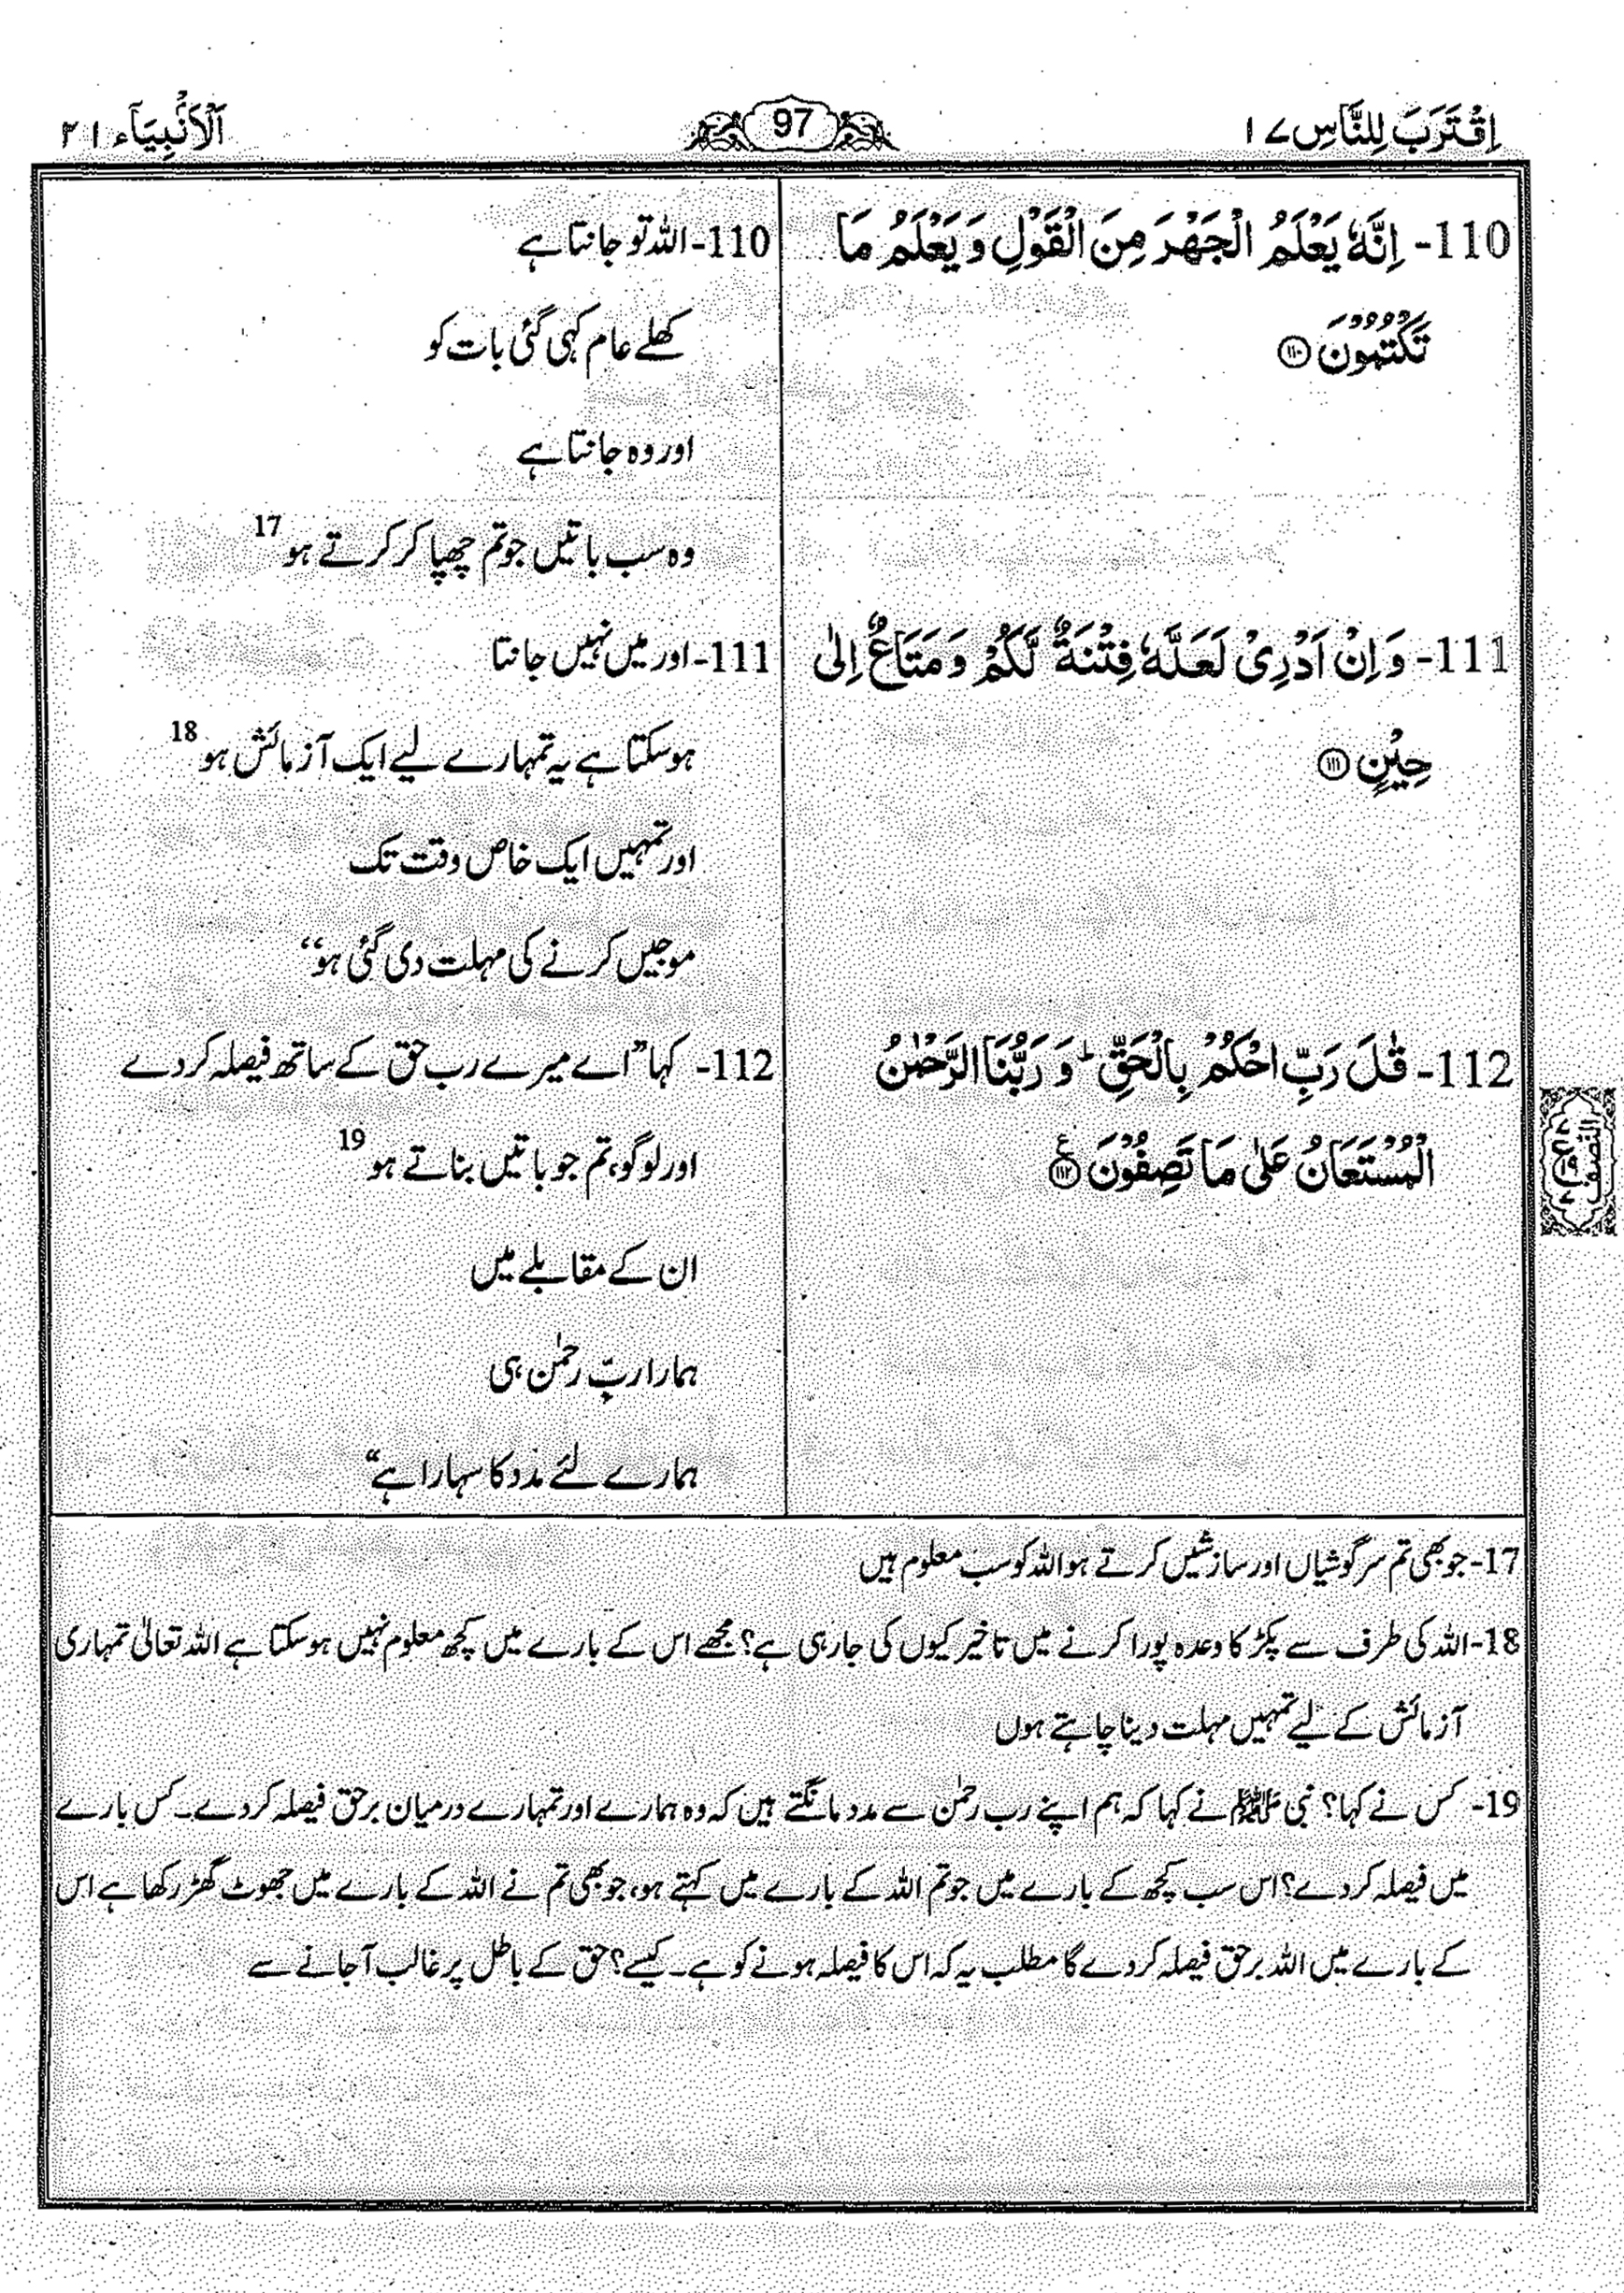 اِقْتَرَبَ لِلنَّاسِ ۱۷
97
اَلْاَنْۢبِيَآء ۲۱
110- اِنَّهٗ يَعْلَمُ الْجَهْرَ مِنَ الْقَوْلِ وَ يَعْلَمُ مَا
تَكْتُمُوْنَ ۝۱۱۰
110-اللہ تو جانتا ہے
کھلے عام کہی گئی بات کو
اور وہ جانتا ہے
وہ سب باتیں جو تم چھپا کر کرتے ہو 17
111- وَ اِنْ اَدْرِيْ لَعَلَّهٗ فِتْنَةٌ لَّكُمْ وَ مَتَاعٌ اِلٰى
حِيْنٍ ۝۱۱۱
111-اور میں نہیں جانتا
ہو سکتا ہے یہ تمہارے لیے ایک آزمائش ہو 18
اور تمہیں ایک خاص وقت تک
موجیں کرنے کی مہلت دی گئی ہو“
112- قٰلَ رَبِّ احْكُمْ بِالْحَقِّ ؕ وَ رَبُّنَا الرَّحْمٰنُ
الْمُسْتَعَانُ عَلٰى مَا تَصِفُوْنَ ۝۱۱۲ ع
112- کہا ”اے میرے رب حق کے ساتھ فیصلہ کر دے
اور لوگو، تم جو باتیں بناتے ہو 19
ان کے مقابلے میں
ہمارا ربّ رحمٰن ہی
ہمارے لئے مدد کا سہارا ہے“
النصف
17-جو بھی تم سرگوشیاں اور سازشیں کرتے ہو اللہ کو سب معلوم ہیں
18-اللہ کی طرف سے پکڑ کا وعدہ پورا کرنے میں تاخیر کیوں کی جارہی ہے؟ مجھے اس کے بارے میں کچھ معلوم نہیں ہو سکتا ہے اللہ تعالیٰ تمہاری
آزمائش کے لیے تمہیں مہلت دینا چاہتے ہوں
19- کس نے کہا؟ نبی ﷺ نے کہا کہ ہم اپنے رب رحمٰن سے مدد مانگتے ہیں کہ وہ ہمارے اور تمہارے درمیان برحق فیصلہ کر دے۔ کس بارے
میں فیصلہ کر دے؟ اس سب کچھ کے بارے میں جو تم اللہ کے بارے میں کہتے ہو، جو بھی تم نے اللہ کے بارے میں جھوٹ گھڑ رکھا ہے اس
کے بارے میں اللہ برحق فیصلہ کر دے گا مطلب یہ کہ اس کا فیصلہ ہونے کو ہے۔ کیسے؟ حق کے باطل پر غالب آ جانے سے